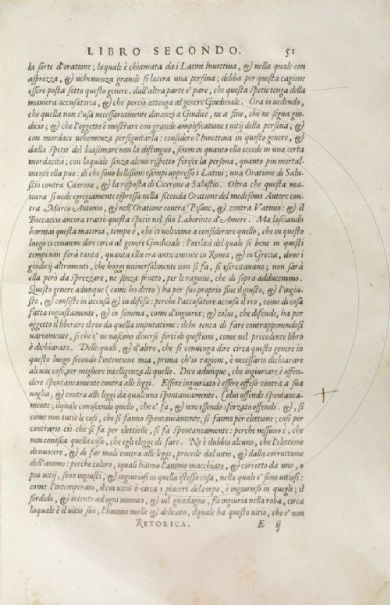 LIBRO SECONDO. 51
la sorte d'oratione; laquale è chiamata da i Latini Inuettiua, & nella quale con
asprezza, & uehemenza grande si lacera una persona; debba per questa cagione
essere posta sotto questo genere, dall'altra parte è pare, che questa spetie tenga della
maniera accusatoria, & che perciò attenga al genere Giudiciale. Ora io uedendo,
che quella non s'usa necessariamente dinanzi a Giudice, ne a fine, che ne segua giu-
dicio; & che l'oggetto è mostrare con grande amplificatione i uitij della persona, &
con mordace uehemenza perseguitarla: considero l'Inuettiua in questo genere, &
dalla spetie del biasimare non la distinguo, senon in quanto ella eccede in una certa
mordacità; con laquale senza alcun rispetto ferisce la persona, quanto piu mortal-
mente ella puo: di che sono bellissimi esempi appresso i Latini; una Oratione di Salu-
stio contra Cicerone, & la risposta di Cicerone a Salustio. Oltra che questa ma-
niera si uede egregiamente espressa nella seconda Oratione del medesimo Autore con-
tra Marco Antonio, & nell'Oratione contra Pisone, & contra Vatinio: & il
Boccaccio ancora trattò questa spetie nel suo Laberinto d'Amore. Ma lasciando
hormai questa materia, tempo è, che ci uoltiamo a considerare quello, che in questo
luogo ci conuiene dire circa al genere Giudiciale: l'utilità del quale se bene in questi
tempi non sarà tanta, quanta ella era anticamente in Roma, & in Grecia, doue i
giudicij altrimenti, che hoggi uniuersalmente non si fa, si essercitauano; non sarà
ella però da sprezzare, ne senza frutto, per le ragioni, che di sopra adducemmo.
Questo genere adunque (come ho detto) ha per suo proprio fine il giusto, & l'ingiu-
sto, & consiste in accusa & in difesa: perche l'accusatore accusa il reo, come di cosa
fatta ingiustamente, & in somma, come d'ingiuria; & colui, che difende, ha per
oggetto il liberare il reo da quella imputatione: ilche tenta di fare contrapponendosi
uariamente, si che e' ne nascono diuerse sorti di questioni, come nel precedente libro
è dichiarato. Delle quali, & d'altro, che si conuenga dire circa questo genere in
questo luogo secondo l'intentione mia, prima ch'io ragioni, è necessario dichiarare
alcune cose, per migliore intelligenza di quello. Dico adunque, che ingiuriare è offen-
dere spontaneamente contra alle leggi. Essere ingiuriato è essere offeso contra a sua
uoglia, & contra alle leggi da qualcuno spontaneamente. Colui offende spontanea-
mente; ilquale conoscendo quello, che e' fa, & non essendo sforzato offende. &, si
come non tutte le cose, che si fanno spontaneamente, si fanno per elettione; cosi per
contrario ciò che si fa per elettione, si fa spontaneamente: perche nessuno è, che
non conosca quella cosa, che egli elegge di fare. Ne è dubbio alcuno, che l'elettione
di nuocere, & di far male contra alle leggi, procede dal uitio, & dalla corruttione
dell'animo: perche coloro, iquali hanno l'animo macchiato, & corrotto da uno, o
piu uitij, sono ingiusti, & ingiuriosi in quella istessa cosa, nella quale e' sono uitiosi:
come l'intemperato, il cui uitio è circa i piaceri del corpo, è ingiurioso in quegli; il
sordido, & intento ad ogni minuto, & uil guadagno, fa ingiuria nella roba, circa
laquale è il uitio suo; l'huomo molle & delicato, ilquale ha questo uitio, che e' non
RETORICA. E ij